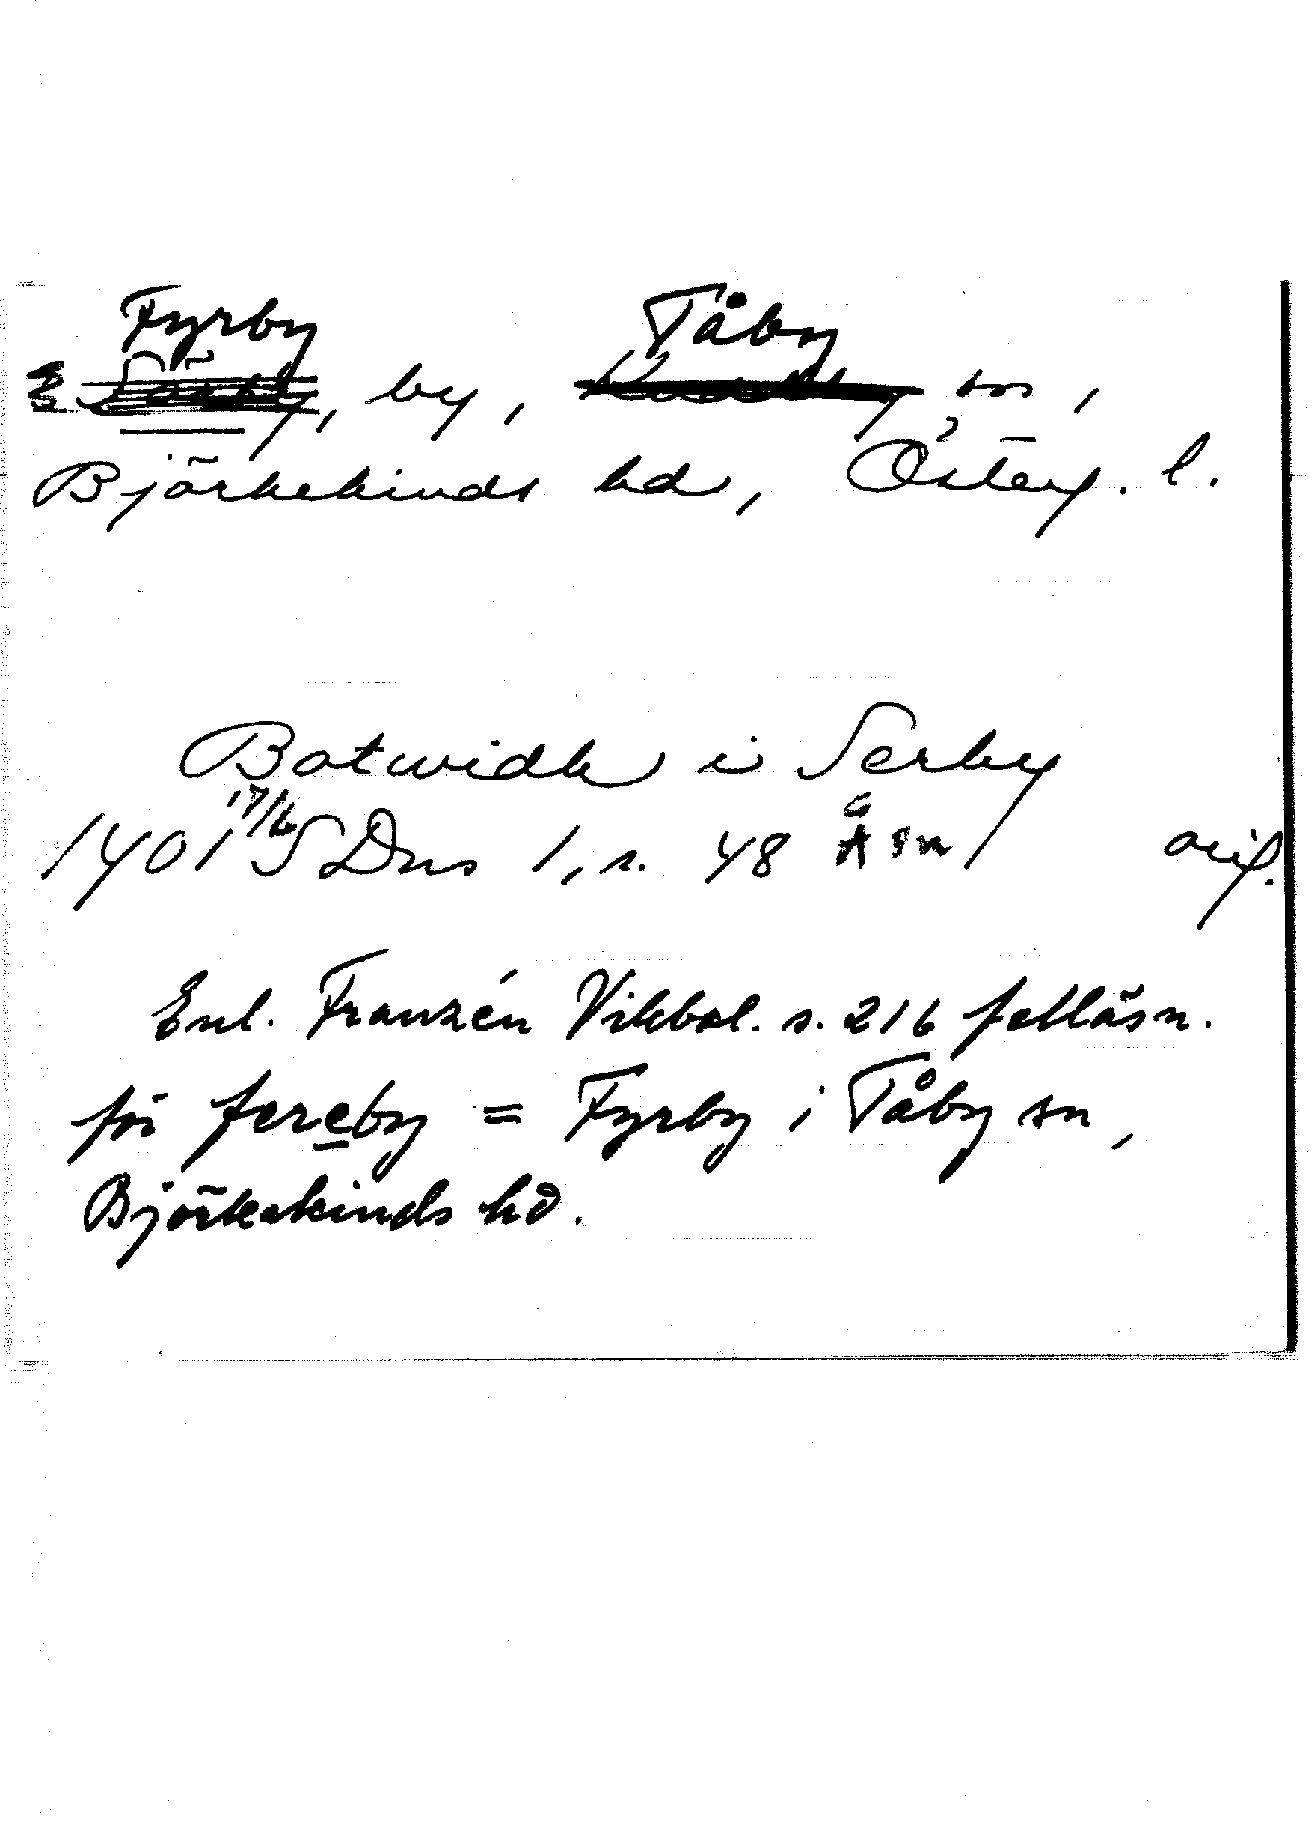 Fyrby Tåby
by, sn,
Björkekinds hd, Österg. l.
Botwidh i Serby
1401 17/6 SDns 1, s. 48 Å sn orig.
Enl. Franzén Vikbol. s. 216 felläsn.
för fereby = Fyrby i Tåby sn,
Björkekinds hd.